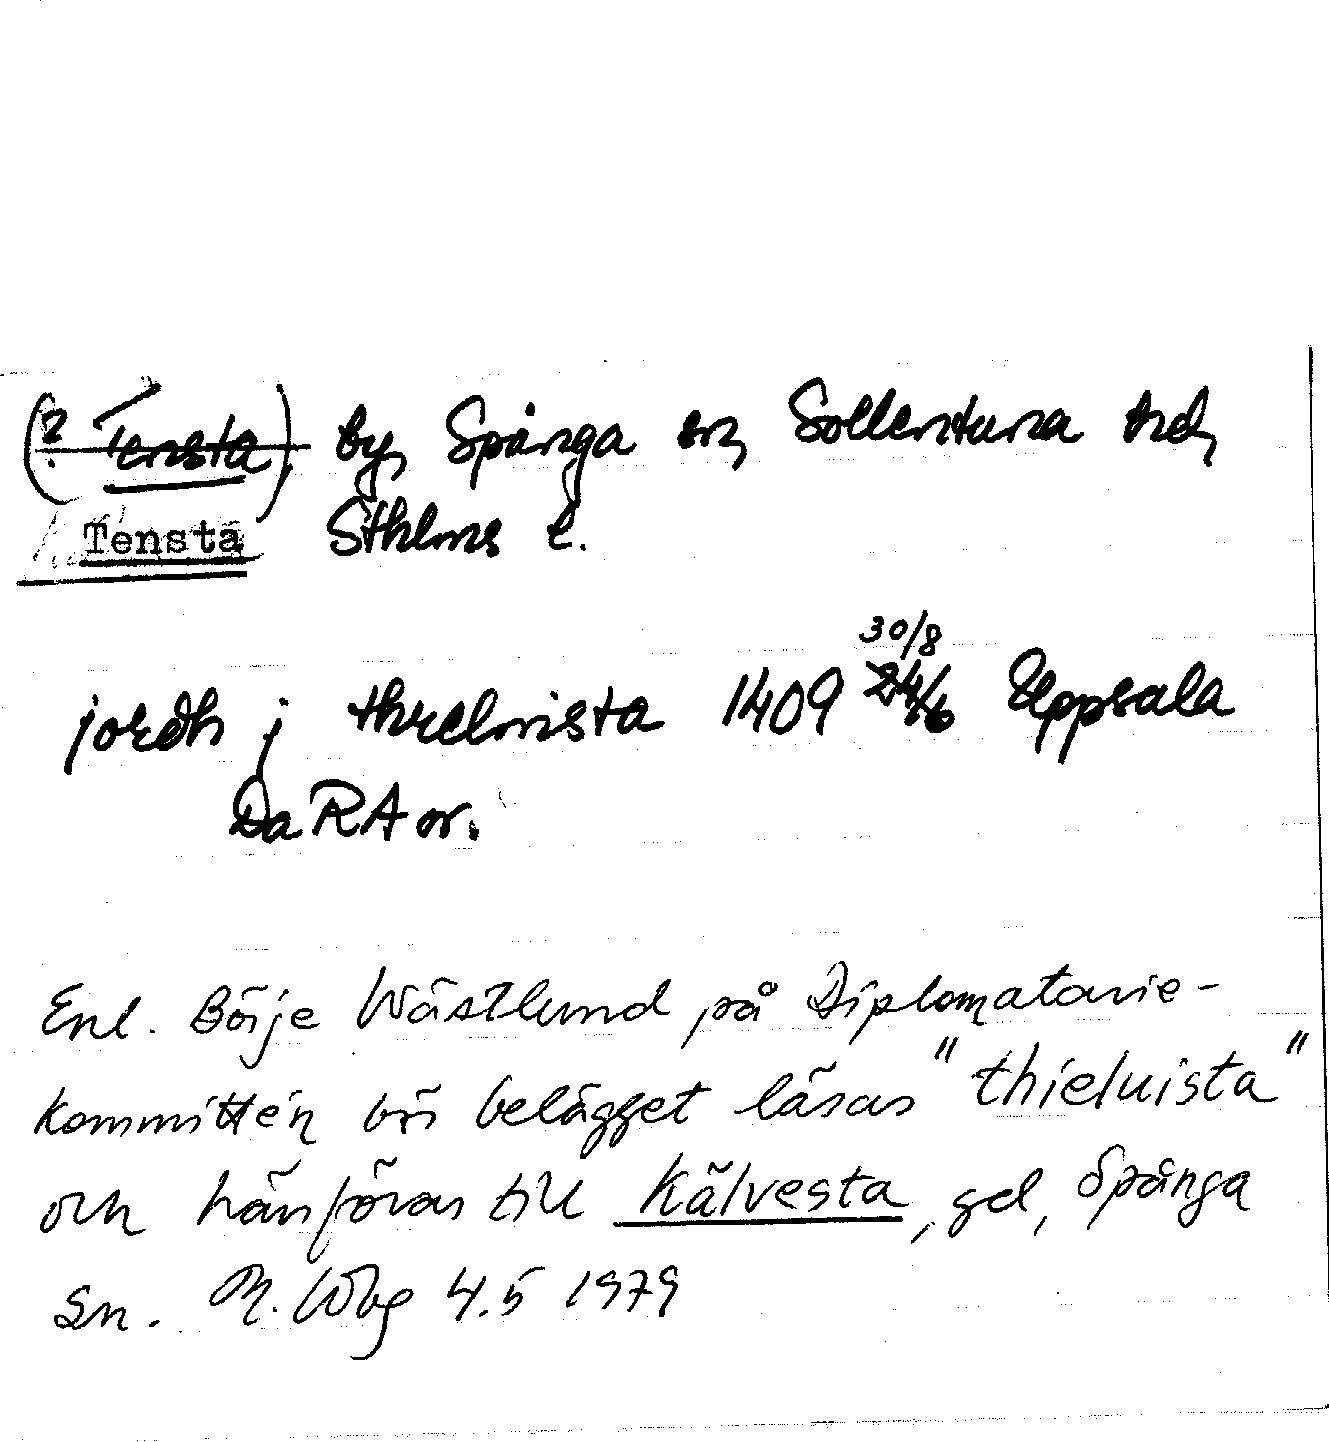 (? Tensta), by, Spånga sn, Sollentuna hd,
Tensta Sthlms l.
30/8
jordh j threlwista 1409 24/6 Uppsala
Da RA or.
Enl. Börje Wästlund på Diplomatarie-
kommittén bör belägget läsas "thieluista"
och hänföras till Kälvesta, gd, Spånga
sn. M. Wbg 4.5 1979